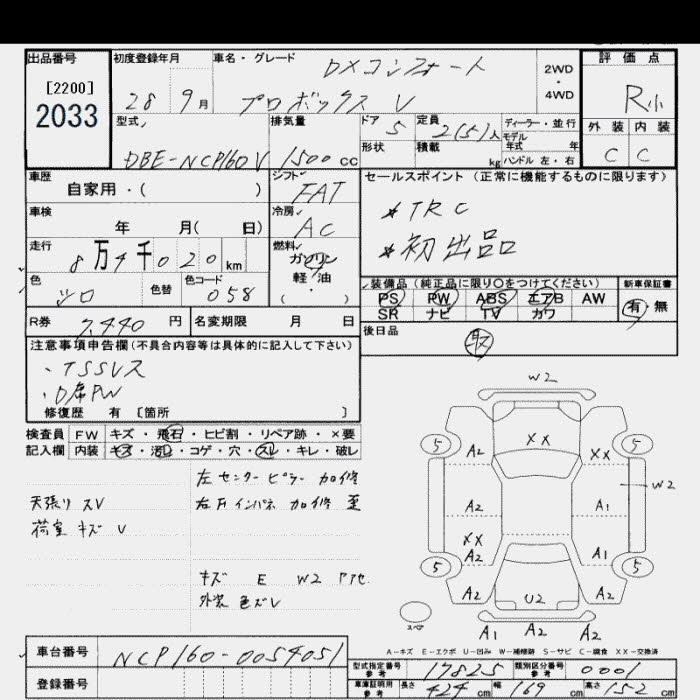 出品番号
[2200]
2033
初度登録年月
28 9月
車名・グレード
DXコンフォート
プロボックス V
2WD
・
4WD
評価点
R小
外装 内装
C C
型式
DBE-NCP160V
排気量
1500 cc
ドア 5
形状
定員 2(5)人
積載 kg
ディーラー・並行
モデル
年式 年
ハンドル 左・右
車歴
自家用・( )
シフト
FAT
セールスポイント (正常に機能するものに限ります)
*TRC
*初出品
車検
年 月( 日)
冷房
AC
走行
8万4千020km
燃料
ガソリン
軽・油
( ・ )
色
シロ
色替
色コード
058
装備品 (純正品に限り○をつけてください)
PS PW ABS エアB AW
SR ナビ TV カワ
新車保証書
有・無
R券 7,440 円
名変期限 月 日
後日品
取
注意事項申告欄 (不具合内容等は具体的に記入して下さい)
・TSSレス
・D席PW
修復歴 有 [箇所 ]
検査員 FW キズ・飛石・ヒビ割・リペア跡・×要
記入欄 内装 キズ・汚れ・コゲ・穴・スレ・キレ・破レ
左センターピラー 加修
天張りスV
右Fインパネ 加修 歪
荷室キズV
キズ E W2
外装 色ズV
W2
5 A2 XX XX 5
W2
A2 A1
XX
A2 A1
5 5
A2 U2 A2
スペア
A1 A2 A2
A-キズ E-エクボ U-凹み W-補修跡 S-サビ C-腐食 XX-交換済
車台番号 NCP160-0054051
登録番号
型式指定番号
参考
17825
類別区分番号
参考
0001
車庫証明用
参考
長さ 424 cm 幅 169 cm 高さ 152 cm